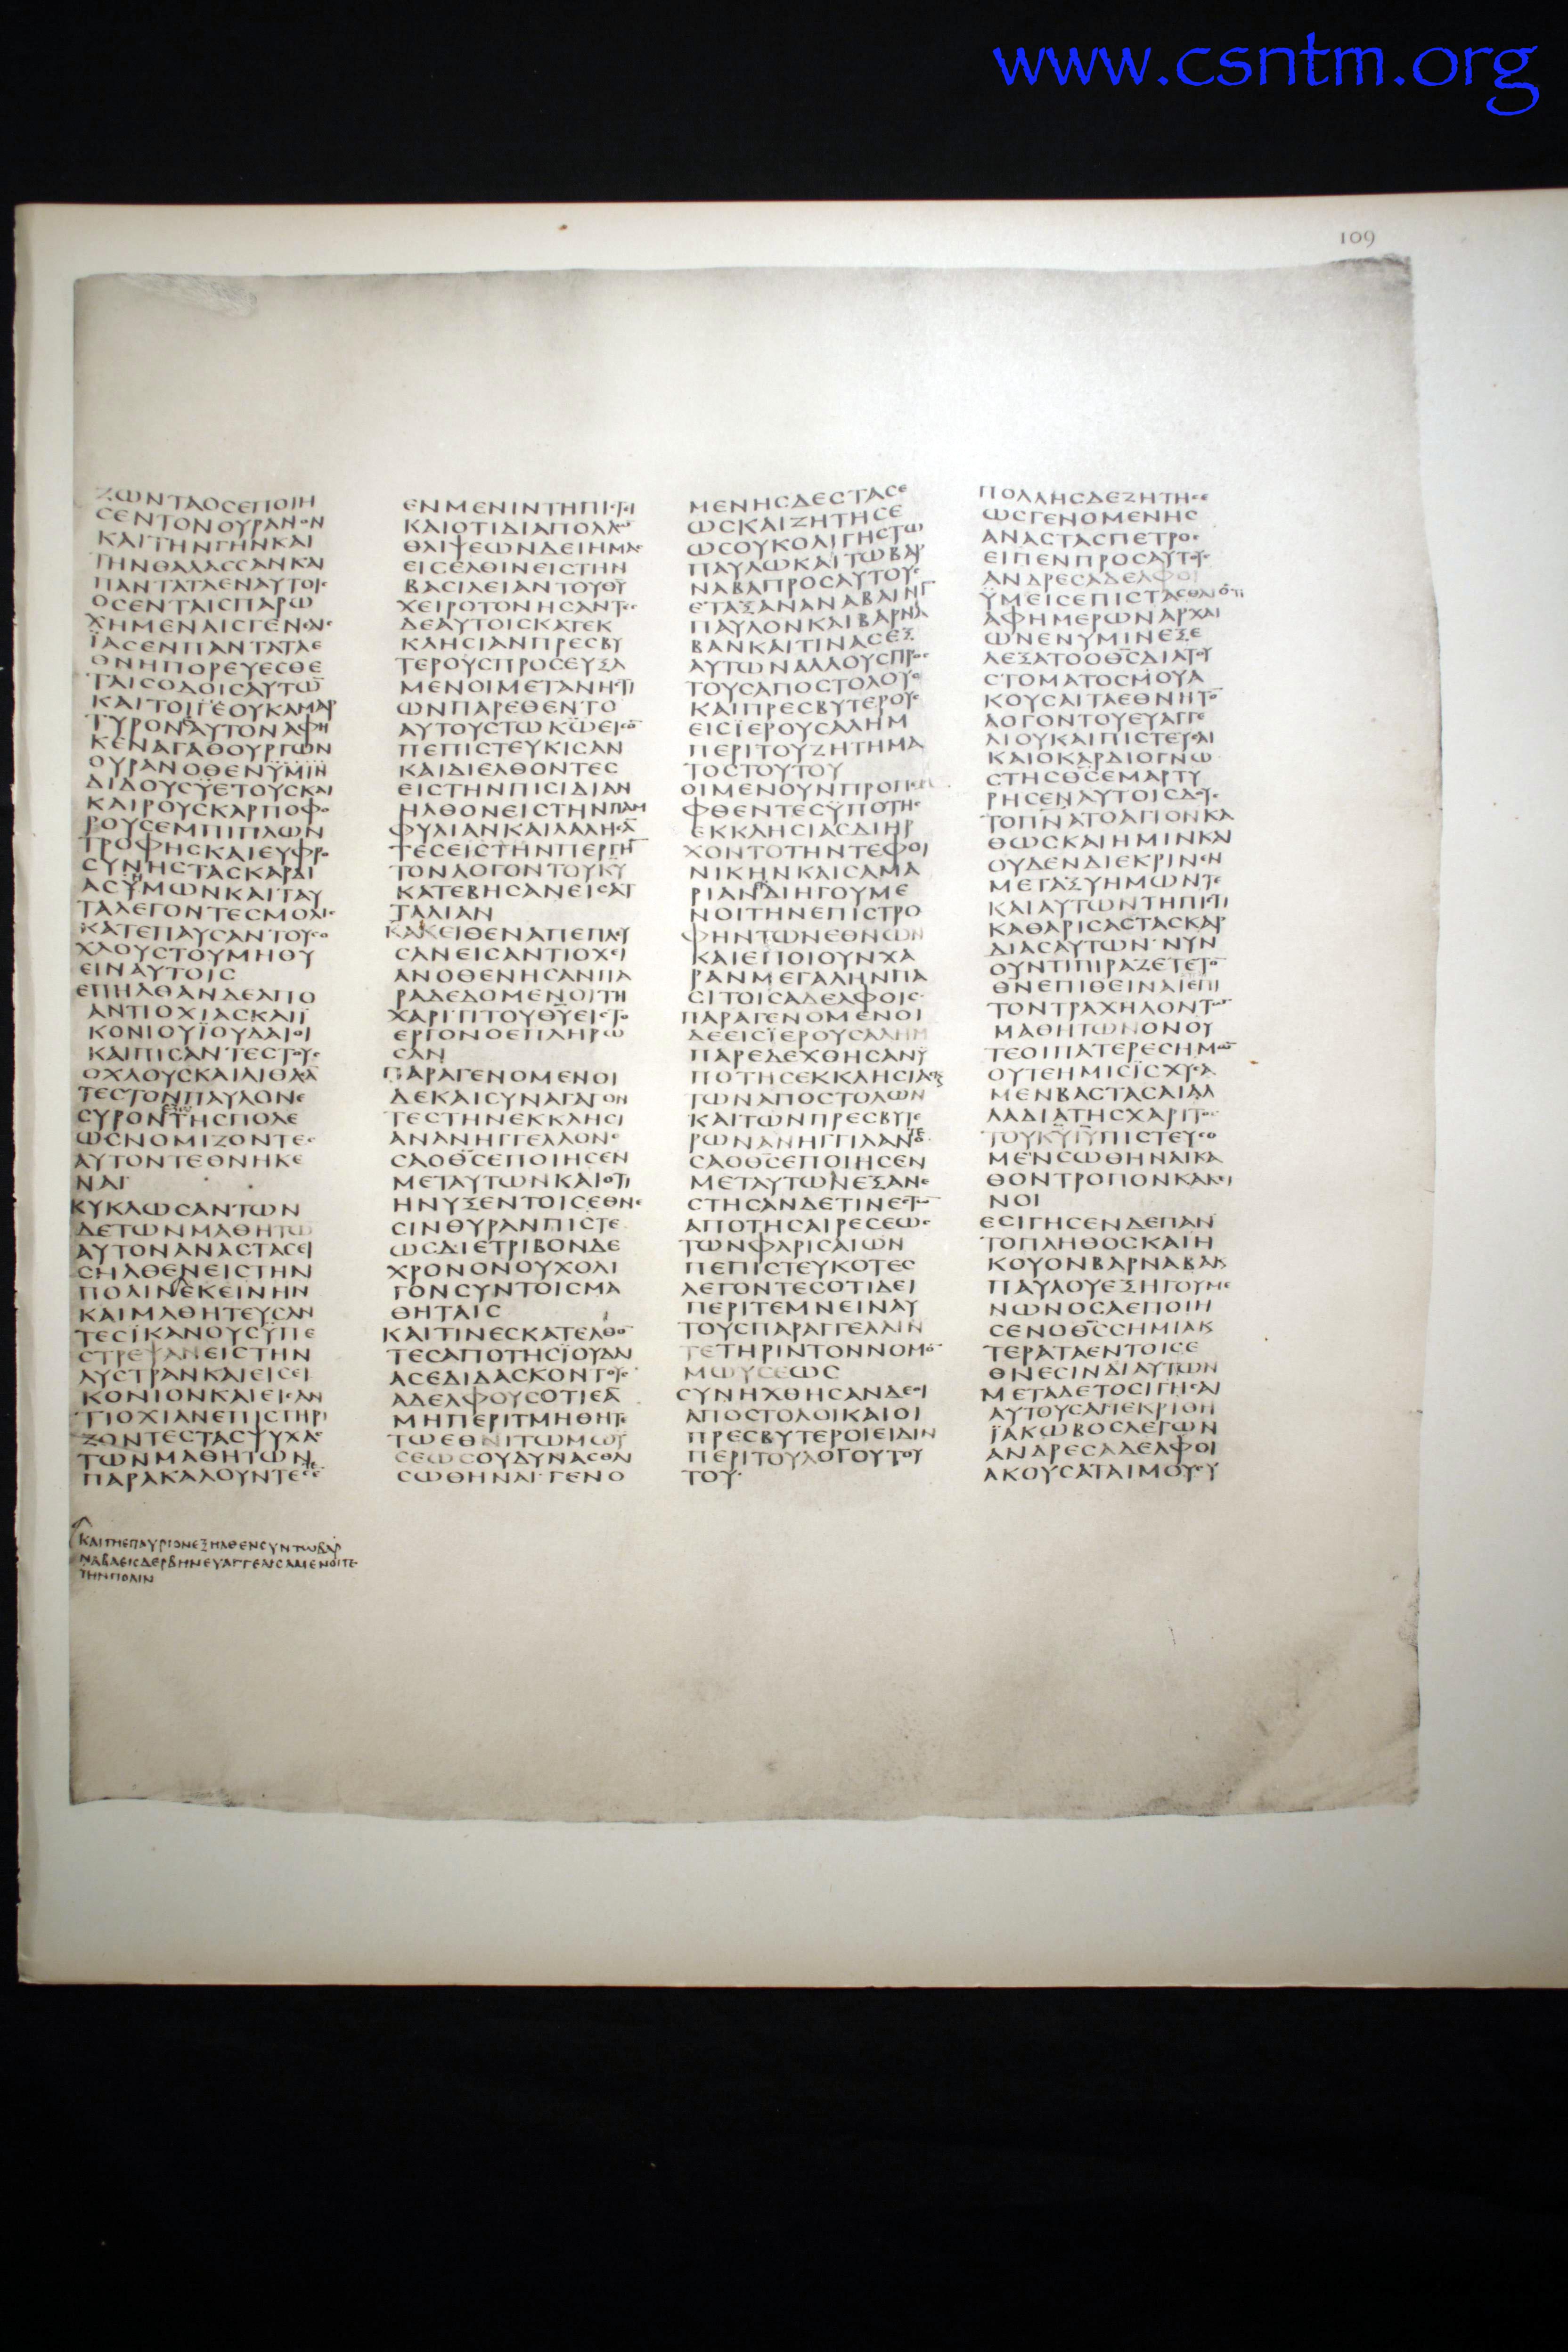 www.csntm.org
109
ΖΩΝΤΑΟϹΕΠΟΙΗ
ϹΕΝΤΟΝΟΥΡΑΝΟΝ
ΚΑΙΤΗΝΓΗΝΚΑΙ
ΤΗΝΘΑΛΑϹϹΑΝΚΑΙ
ΠΑΝΤΑΤΑΕΝΑΥΤΟΙϹ
ΟϹΕΝΤΑΙϹΠΑΡΩ
ΧΗΜΕΝΑΙϹΓΕΝΕΑΙϹ
ΪΑϹΕΝΠΑΝΤΑΤΑΕ
ΘΝΗΠΟΡΕΥΕϹΘΕ
ΤΑΙϹΟΔΟΙϹΑΥΤΩ̅
ΤΥΡΟΝΑΥΤΟΝΑΦΗ
ΚΕΝΑΓΑΘΟΥΡΓΩΝ
ΟΥΡΑΝΟΘΕΝΫΜΙΝ
ΔΙΔΟΥϹΫΕΤΟΥϹΚΑΙ
ΚΑΙΡΟΥϹΚΑΡΠΟΦΟ
ΡΟΥϹΕΜΠΙΠΛΩΝ
ΤΡΟΦΗϹΚΑΙΕΥΦΡΟ
ϹΥΝΗϹΤΑϹΚΑΡΔΙ
ΑϹΫΜΩΝΚΑΙΤΑΥ
ΤΑΛΕΓΟΝΤΕϹΜΟΛΙϹ
ΚΑΤΕΠΑΥϹΑΝΤΟΥϹΟ
ΧΛΟΥϹΤΟΥΜΗΘΥ
ΕΙΝΑΥΤΟΙϹ
ΕΠΗΛΘΑΝΔΕΑΠΟ
ΑΝΤΙΟΧΙΑϹΚΑΙΪ
ΚΟΝΙΟΥΪΟΥΔΑΙΟΙ
ΚΑΙΠΙϹΑΝΤΕϹΤΟΥϹ
ΟΧΛΟΥϹΚΑΙΛΙΘΑϹΑ̅
ΤΕϹΤΟΝΠΑΥΛΟΝΕ
ϹΥΡΟΝΤΗϹΠΟΛΕ
ΩϹΝΟΜΙΖΟΝΤΕϹ
ΑΥΤΟΝΤΕΘΝΗΚΕ
ΝΑΙ
ΚΥΚΛΩϹΑΝΤΩΝ
ΔΕΤΩΝΜΑΘΗΤΩ
ΑΥΤΟΝΑΝΑϹΤΑϹΕΙ
ϹΗΛΘΕΝΕΙϹΤΗΝ
ΠΟΛΙΝΕΚΕΙΝΗΝ
ΚΑΙΜΑΘΗΤΕΥϹΑΝ
ΤΕϹΪΚΑΝΟΥϹΫΠΕ
ϹΤΡΕΨΑΝΕΙϹΤΗΝ
ΛΥϹΤΡΑΝΚΑΙΕΙϹΕΙ
ΚΟΝΙΟΝΚΑΙΕΙϹΑΝ
ΤΙΟΧΙΑΝΕΠΙϹΤΗΡΙ
ΖΟΝΤΕϹΤΑϹΨΥΧΑϹ
ΤΩΝΜΑΘΗΤΩΝ
ΠΑΡΑΚΑΛΟΥΝΤΕϹ
ΚΑΙΤΗΕΠΑΥΡΙΟΝΕΞΗΛΘΕΝϹΥΝΤΩΒΑΡ
ΝΑΒΑΕΙϹΔΕΡΒΗΝΕΥΑΓΓΕΛΙϹΑΜΕΝΟΙΤΕ
ΤΗΝΠΟΛΙΝ
ΕΝΜΕΝΙΝΤΗΠΙϹΤΙ
ΚΑΙΟΤΙΔΙΑΠΟΛΛΩ̅
ΘΛΙΨΕΩΝΔΕΙΗΜΑϹ
ΕΙϹΕΛΘΙΝΕΙϹΤΗΝ
ΒΑϹΙΛΕΙΑΝΤΟΥΘΥ
ΧΕΙΡΟΤΟΝΗϹΑΝΤΕϹ
ΔΕΑΥΤΟΙϹΚΑΤΕΚ
ΚΛΗϹΙΑΝΠΡΕϹΒΥ
ΤΕΡΟΥϹΠΡΟϹΕΥΞΑ
ΜΕΝΟΙΜΕΤΑΝΗϹΤΙ
ΩΝΠΑΡΕΘΕΝΤΟ
ΑΥΤΟΥϹΤΩΚΩΕΙϹΟ̅
ΠΕΠΙϹΤΕΥΚΙϹΑΝ
ΚΑΙΔΙΕΛΘΟΝΤΕϹ
ΕΙϹΤΗΝΠΙϹΙΔΙΑΝ
ΗΛΘΟΝΕΙϹΤΗΝΠΑΜ
ΦΥΛΙΑΝΚΑΙΛΑΛΗϹΑ̅
ΤΕϹΕΙϹΤΗΝΠΕΡΓΗ̅
ΤΟΝΛΟΓΟΝΤΟΥΚΥ
ΚΑΤΕΒΗϹΑΝΕΙϹΑΤ
ΤΑΛΙΑΝ
ΚΑΚΕΙΘΕΝΑΠΕΠΛΕΥ
ϹΑΝΕΙϹΑΝΤΙΟΧΕΙ
ΑΝΟΘΕΝΗϹΑΝΠΑ
ΡΑΔΕΔΟΜΕΝΟΙΤΗ
ΧΑΡΙΤΙΤΟΥΘΥΕΙϹΤΟ
ΕΡΓΟΝΟΕΠΛΗΡΩ
ϹΑΝ
ΠΑΡΑΓΕΝΟΜΕΝΟΙ
ΔΕΚΑΙϹΥΝΑΓΑΓΟΝ
ΤΕϹΤΗΝΕΚΚΛΗϹΙ
ΑΝΑΝΗΓΓΕΛΛΟΝΟ
ϹΑΟΘϹΕΠΟΙΗϹΕΝ
ΜΕΤΑΥΤΩΝΚΑΙΟΤΙ
ΗΝΥΞΕΝΤΟΙϹΕΘΝΕ
ϹΙΝΘΥΡΑΝΠΙϹΤΕ
ΩϹΔΙΕΤΡΙΒΟΝΔΕ
ΧΡΟΝΟΝΟΥΧΟΛΙ
ΓΟΝϹΥΝΤΟΙϹΜΑ
ΘΗΤΑΙϹ
ΚΑΙΤΙΝΕϹΚΑΤΕΛΘΟ̅
ΤΕϹΑΠΟΤΗϹΪΟΥΔΑΙ
ΑϹΕΔΙΔΑϹΚΟΝΤΟΥϹ
ΑΔΕΛΦΟΥϹΟΤΙΕΑ̅
ΜΗΠΕΡΙΤΜΗΘΗΤΕ
ΤΩΕΘΝΙΤΩΜΩΫ
ϹΕΩϹΟΥΔΥΝΑϹΘΑΙ
ϹΩΘΗΝΑΙ·ΓΕΝΟ
ΜΕΝΗϹΔΕϹΤΑϹΕ
ΩϹΚΑΙΖΗΤΗϹΕ
ΩϹΟΥΚΟΛΙΓΗϹΤΩ
ΠΑΥΛΩΚΑΙΤΩΒΑΡ
ΝΑΒΑΠΡΟϹΑΥΤΟΥϹ
ΕΤΑΞΑΝΑΝΑΒΑΙΝΙ̅
ΠΑΥΛΟΝΚΑΙΒΑΡΝΑ
ΒΑΝΚΑΙΤΙΝΑϹΕΞ
ΑΥΤΩΝΑΛΛΟΥϹΠΡΟϹ
ΤΟΥϹΑΠΟϹΤΟΛΟΥϹ
ΚΑΙΠΡΕϹΒΥΤΕΡΟΥϹ
ΕΙϹΪΕΡΟΥϹΑΛΗΜ
ΠΕΡΙΤΟΥΖΗΤΗΜΑ
ΤΟϹΤΟΥΤΟΥ
ΟΙΜΕΝΟΥΝΠΡΟΠΕΜ
ΦΘΕΝΤΕϹΫΠΟΤΗϹ
ΕΚΚΛΗϹΙΑϹΔΙΗΡ
ΧΟΝΤΟΤΗΝΤΕΦΟΙ
ΝΙΚΗΝΚΑΙϹΑΜΑ
ΡΙΑΝΔΙΗΓΟΥΜΕ
ΝΟΙΤΗΝΕΠΙϹΤΡΟ
ΦΗΝΤΩΝΕΘΝΩΝ
ΚΑΙΕΠΟΙΟΥΝΧΑ
ΡΑΝΜΕΓΑΛΗΝΠΑ
ϹΙΤΟΙϹΑΔΕΛΦΟΙϹ·
ΠΑΡΑΓΕΝΟΜΕΝΟΙ
ΔΕΕΙϹΪΕΡΟΥϹΑΛΗΜ
ΠΑΡΕΔΕΧΘΗϹΑΝΫ
ΠΟΤΗϹΕΚΚΛΗϹΙΑϹΚ
ΤΩΝΑΠΟϹΤΟΛΩΝ
ΚΑΙΤΩΝΠΡΕϹΒΥΤΕ
ΡΩΝΑΝΗΓΓΙΛΑΝΟ
ϹΑΟΘϹΕΠΟΙΗϹΕΝ
ΜΕΤΑΥΤΩΝΕΞΑΝΕ
ϹΤΗϹΑΝΔΕΤΙΝΕϹΤΩ̅
ΑΠΟΤΗϹΑΙΡΕϹΕΩϹ
ΤΩΝΦΑΡΙϹΑΙΩΝ
ΠΕΠΙϹΤΕΥΚΟΤΕϹ
ΛΕΓΟΝΤΕϹΟΤΙΔΕΙ
ΠΕΡΙΤΕΜΝΕΙΝΑΥ
ΤΟΥϹΠΑΡΑΓΓΕΛΛΙΝ
ΤΕΤΗΡΙΝΤΟΝΝΟΜΟ̅
ΜΩΥϹΕΩϹ
ϹΥΝΗΧΘΗϹΑΝΔΕΟΙ
ΑΠΟϹΤΟΛΟΙΚΑΙΟΙ
ΠΡΕϹΒΥΤΕΡΟΙΕΙΔΙΝ
ΠΕΡΙΤΟΥΛΟΓΟΥΤΟΥ
ΤΟΥ·
ΠΟΛΛΗϹΔΕΖΗΤΗϹΕ
ΩϹΓΕΝΟΜΕΝΗϹ
ΑΝΑϹΤΑϹΠΕΤΡΟϹ
ΕΙΠΕΝΠΡΟϹΑΥΤΟΥϹ
ΑΝΔΡΕϹΑΔΕΛΦΟΙ
ΫΜΕΙϹΕΠΙϹΤΑϹΘΑΙΟΤΙ
ΑΦΗΜΕΡΩΝΑΡΧΑΙ
ΩΝΕΝΥΜΙΝΕΞΕ
ΛΕΞΑΤΟΟΘϹΔΙΑΤΟΥ
ϹΤΟΜΑΤΟϹΜΟΥΑ
ΚΟΥϹΑΙΤΑΕΘΝΗΤΟ̅
ΛΟΓΟΝΤΟΥΕΥΑΓΓΕ
ΛΙΟΥΚΑΙΠΙϹΤΕΥϹΑΙ
ΚΑΙΟΚΑΡΔΙΟΓΝΩ
ϹΤΗϹΘϹΕΜΑΡΤΥ
ΡΗϹΕΝΑΥΤΟΙϹΔΟΥϹ
ΤΟΠΝΑΤΟΑΓΙΟΝΚΑ
ΘΩϹΚΑΙΗΜΙΝΚΑΙ
ΟΥΔΕΝΔΙΕΚΡΙΝΕΝ
ΜΕΤΑΞΥΗΜΩΝΤΕ
ΚΑΙΑΥΤΩΝΤΗΠΙϹΤΙ
ΚΑΘΑΡΙϹΑϹΤΑϹΚΑΡ
ΔΙΑϹΑΥΤΩΝ·ΝΥΝ
ΟΥΝΤΙΠΙΡΑΖΕΤΕΤΟ̅
ΘΝΕΠΙΘΕΙΝΑΙΕΠΙ
ΤΟΝΤΡΑΧΗΛΟΝΤΩ̅
ΜΑΘΗΤΩΝΟΝΟΥ
ΤΕΟΙΠΑΤΕΡΕϹΗΜΩ̅
ΟΥΤΕΗΜΙϹΪϹΧΥϹΑ
ΜΕΝΒΑϹΤΑϹΑΙΑΛ
ΛΑΔΙΑΤΗϹΧΑΡΙΤΟϹ
ΤΟΥΚΥΙΥΠΙϹΤΕΥϹΟ
ΜΕΝϹΩΘΗΝΑΙΚΑ
ΘΟΝΤΡΟΠΟΝΚΑΚΕΙ
ΝΟΙ
ΕϹΙΓΗϹΕΝΔΕΠΑΝ
ΤΟΠΛΗΘΟϹΚΑΙΗ
ΚΟΥΟΝΒΑΡΝΑΒΑΚ
ΠΑΥΛΟΥΕΞΗΓΟΥΜΕ
ΝΩΝΟϹΑΕΠΟΙΗ
ϹΕΝΟΘϹϹΗΜΙΑΚ
ΤΕΡΑΤΑΕΝΤΟΙϹΕ
ΘΝΕϹΙΝΔΙΑΥΤΩΝ
ΜΕΤΑΔΕΤΟϹΙΓΗϹΑΙ
ΑΥΤΟΥϹΑΠΕΚΡΙΘΗ
ΪΑΚΩΒΟϹΛΕΓΩΝ
ΑΝΔΡΕϹΑΔΕΛΦΟΙ
ΑΚΟΥϹΑΤΑΙΜΟΥϹΥ